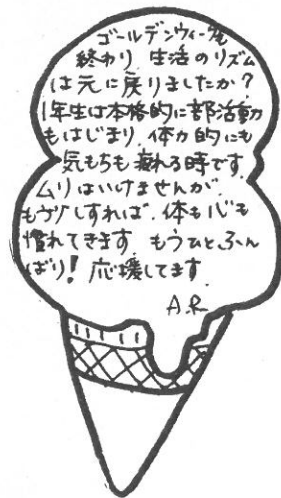 ゴールデンウィークも
終わり 生活のリズム
は元に戻りましたか?
1年生は本格的に部活動
もはじまり、体力的にも
気もちも疲れる時です
ムリはいけませんが、
もう少しすれば、体も心も
慣れてきます もうひとふん
ばり! 応援してます
A.R